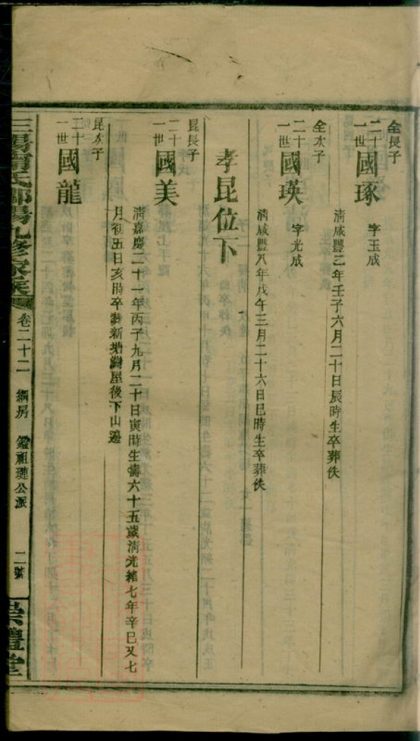 全長子
二十一世 國琢 字玉成
清咸豐乙年壬子六月二十日辰時生卒葬佚
全次子
二十一世 國瑛 字光成
清咸豐八年戊午三月二十六日巳時生卒葬佚
孝昆位下
昆長子
二十一世 國美
清嘉慶二十一年丙子九月二十日寅時生壽六十五歲清光緒七年辛巳又七
月初五日亥時卒葬新塘灣屋後下山邊
昆次子
二十一世 國龍
卷二十二
公派
二
崇禮堂